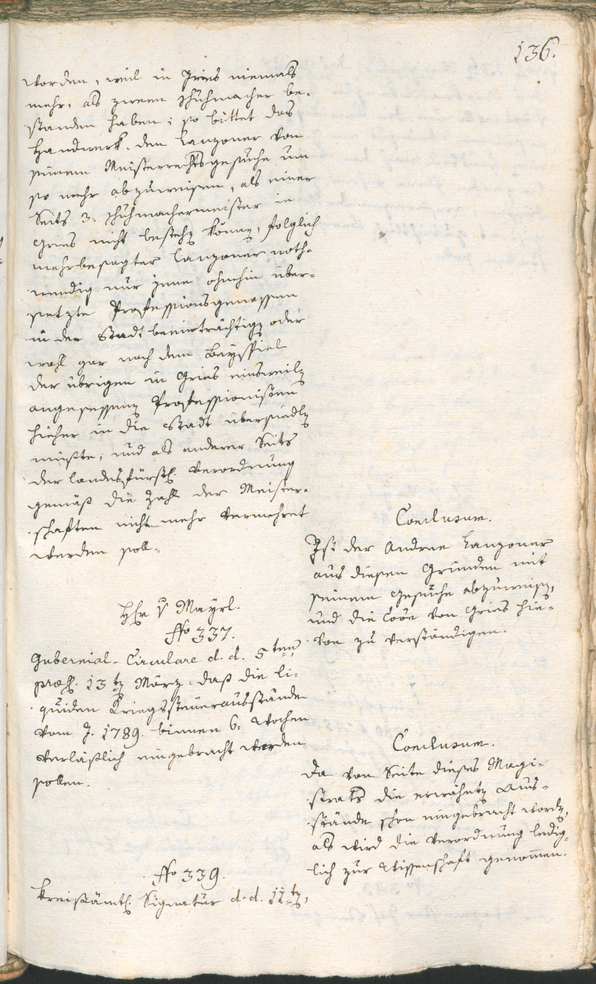 136.
worden, weil in Gries niemals
mehr, als zween Schuhmacher be-
standen haben; so bittet das
Handwerk den Lanzoner von
seinem Meisterrechtsgesuche um
so mehr abzuweisen, als einer
Seits 3. Schuhmachermeister in
Gries nicht bestehen können, folglich
mehrbesagter Lanzoner noth-
wendig nur jene ohnehin über-
setzte Professionsgenossen
in der Stadt beeinträchtigen oder
wohl gar nach dem Beyspiel
der übrigen in Gries einsweilen
angesessenen Professionisten
hieher in die Stadt übersiedlen
müßte, und als anderer Seits
der landesfürstl. Verordnung
gemäß die Zahl der Meister-
schaften nicht mehr vermehret
werden soll.
Conclusum.
Ist der Andree Lanzoner
aus diesen Gründen mit
seinem Gesuche abzuweisen,
und die Löbe von Gries hie-
von zu verständigen.
H: v Mayrl.
No 337.
Gubernial-Circulare d. d. 5ten
præs. 13ten März, daß die li-
quiden Kriegssteuerausstände
vom J. 1789. binnen 6. Wochen
verläßlich eingebracht werden
sollen.
Conclusum.
Da von Seite dieses Magi-
strats die erwähnten Aus-
stände schon eingebracht worden,
als wird die Verordnung ledig-
lich zur Wissenschaft genommen.
No 339.
Kreisämtl. Signatur d. d. 11ten,